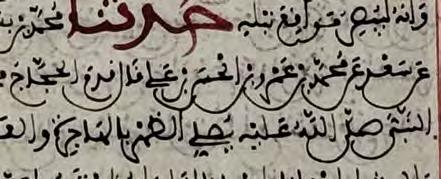 وانه ليبصر مواقع نبله حدثنا محمد بن
عن سعد عن محمد بن عمرو بن الحسن بن علي قال قدم الحجاج
النبي صلى الله عليه يصلي الظهر بالهاجرة